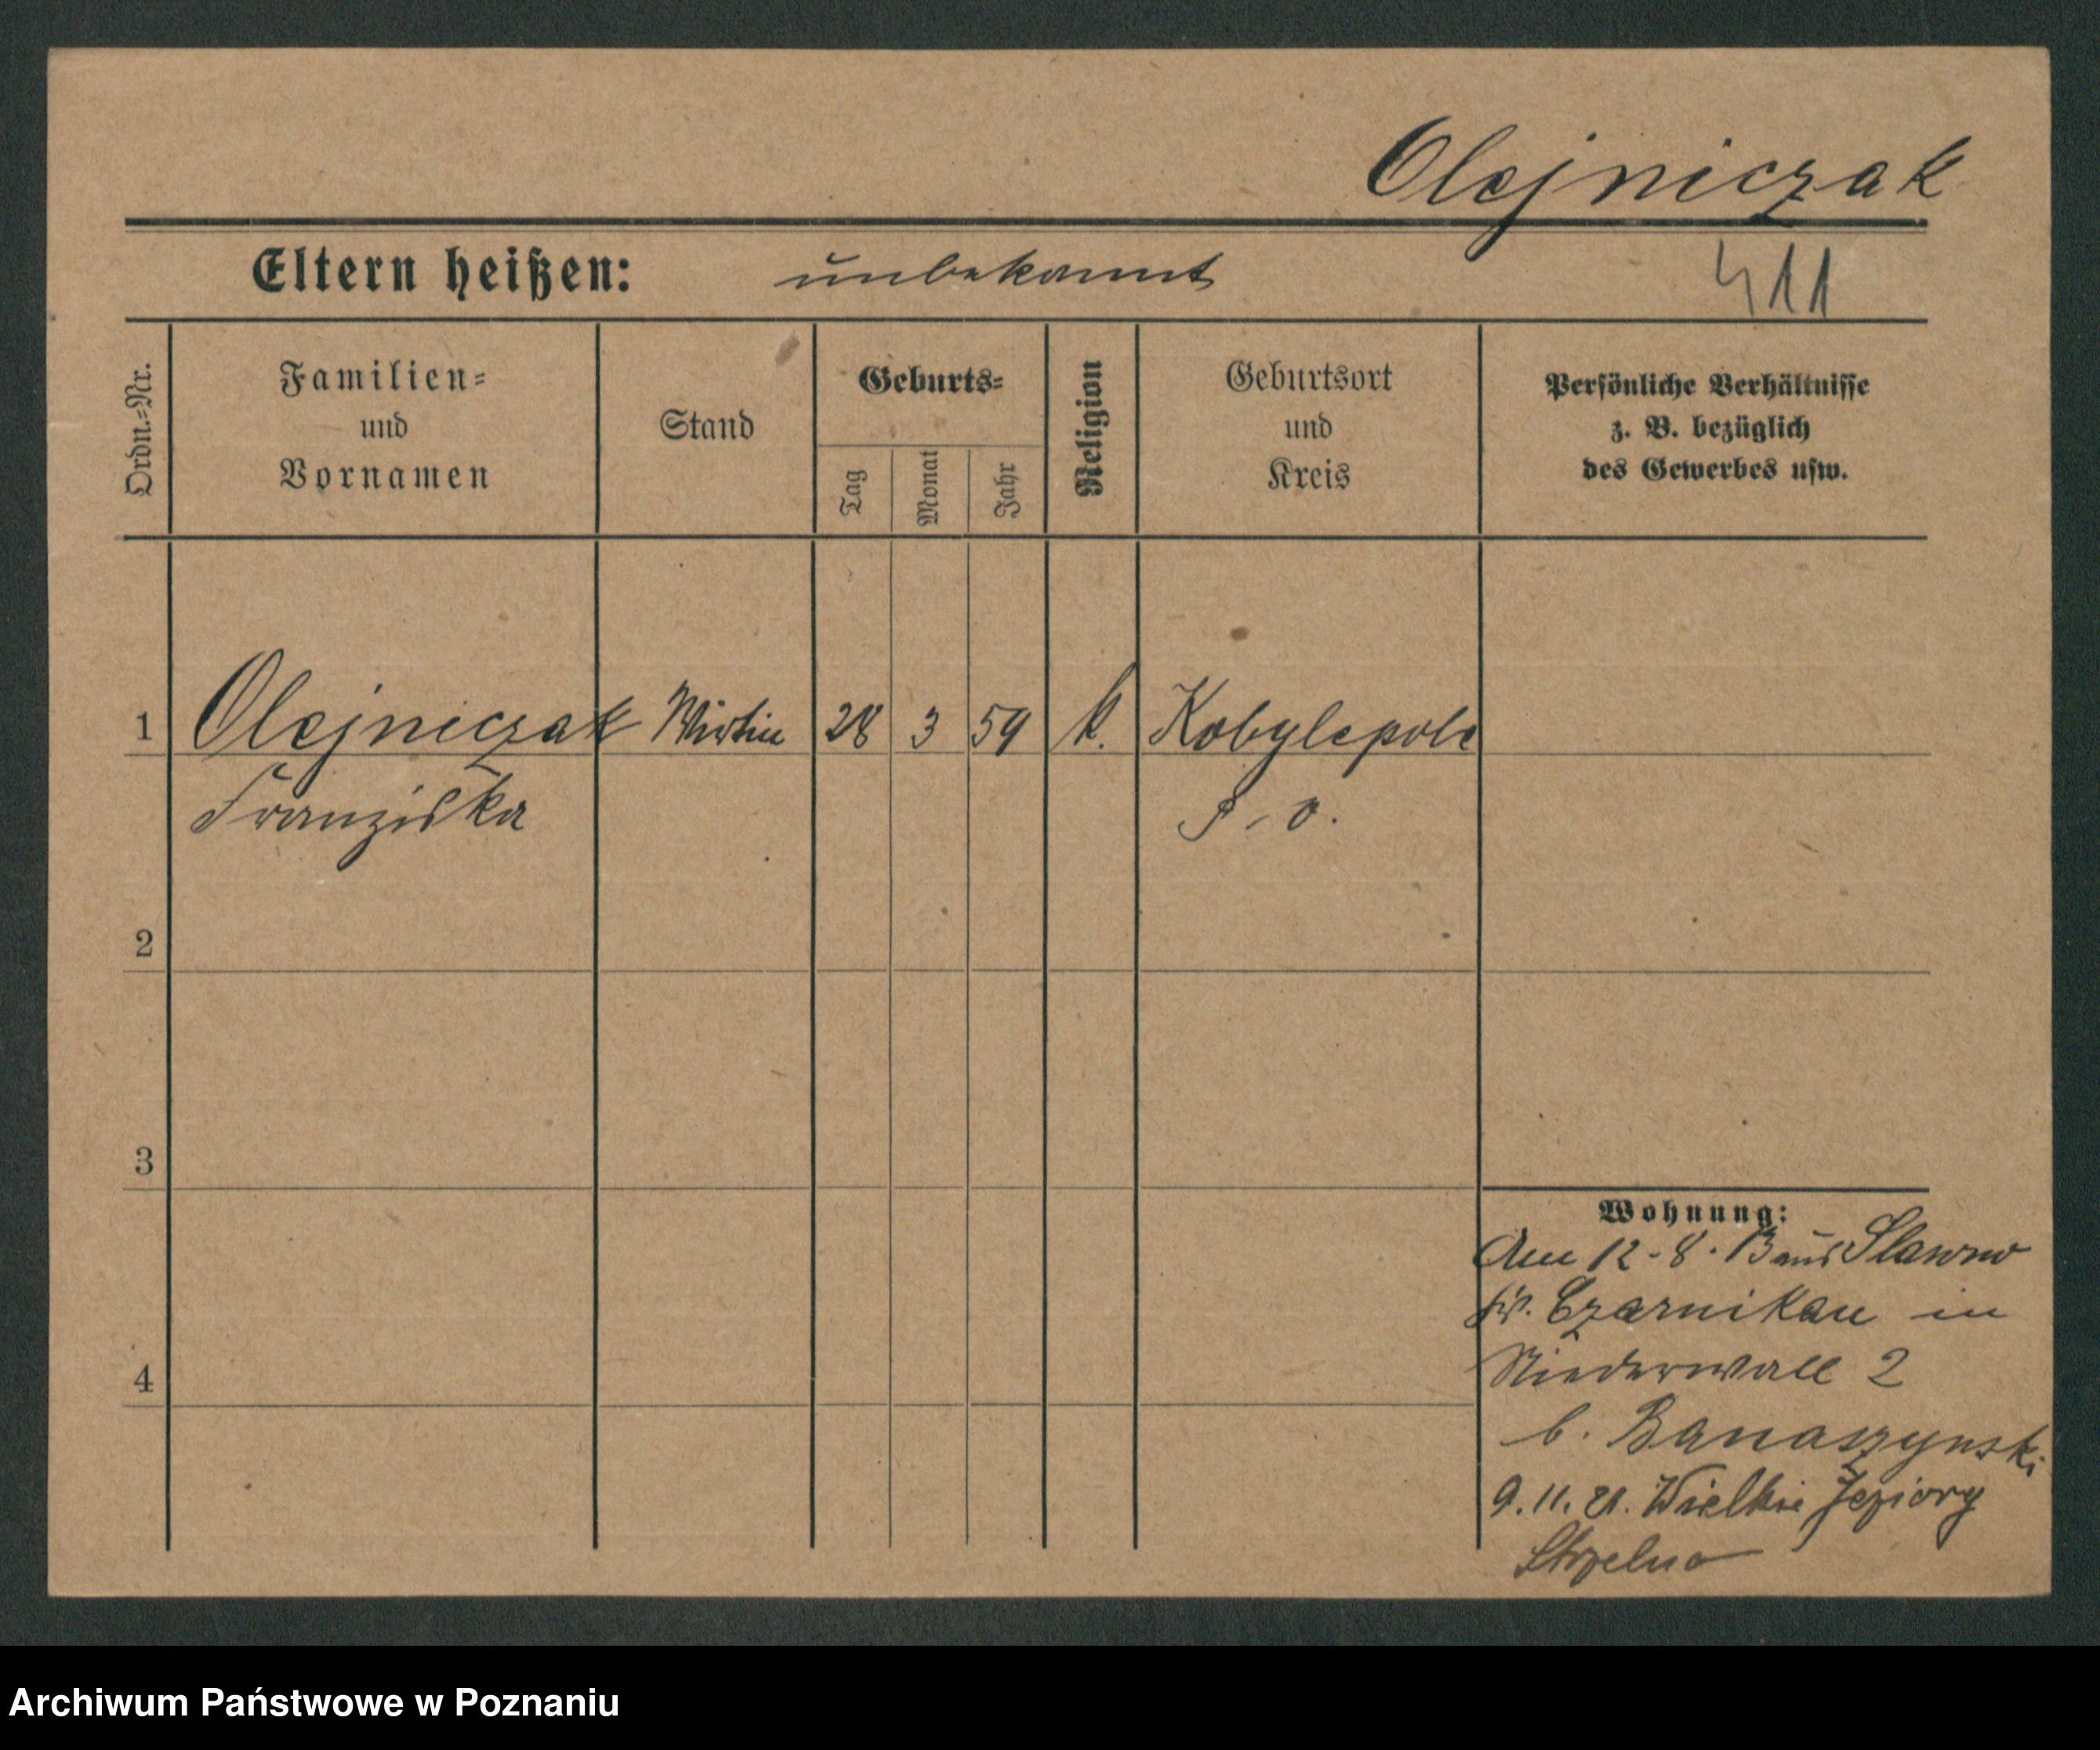 Olejniczak
Eltern heißen: unbekannt
411
Ordn.=Nr.
Familien=
und
Vornamen
Stand
Geburts=
Tag
Monat
Jahr
Religion
Geburtsort
und
Kreis
Persönliche Verhältnisse
z. B. bezüglich
des Gewerbes usw.
1 Olejniczak Wirtin 28 3 59 k. Kobylepole
Franziska P. O.
2
3
4
Wohnung:
Am 12.8.13 aus Slawno
Kr. Czarnikau in
Niederwall 2
b. Banaszynski
9.11.21. Wielkie Jeziory
Strzelno
Archiwum Państwowe w Poznaniu